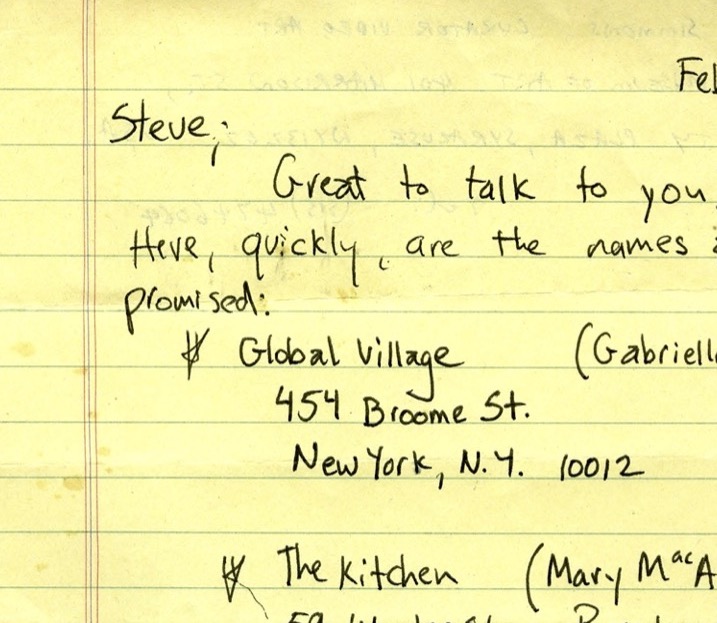 Feb
Steve;
Great to talk to you,
Here, quickly, are the names
promised:
Global Village (Gabriell
454 Broome St.
New York, N.Y. 10012
The Kitchen (Mary MacA
59